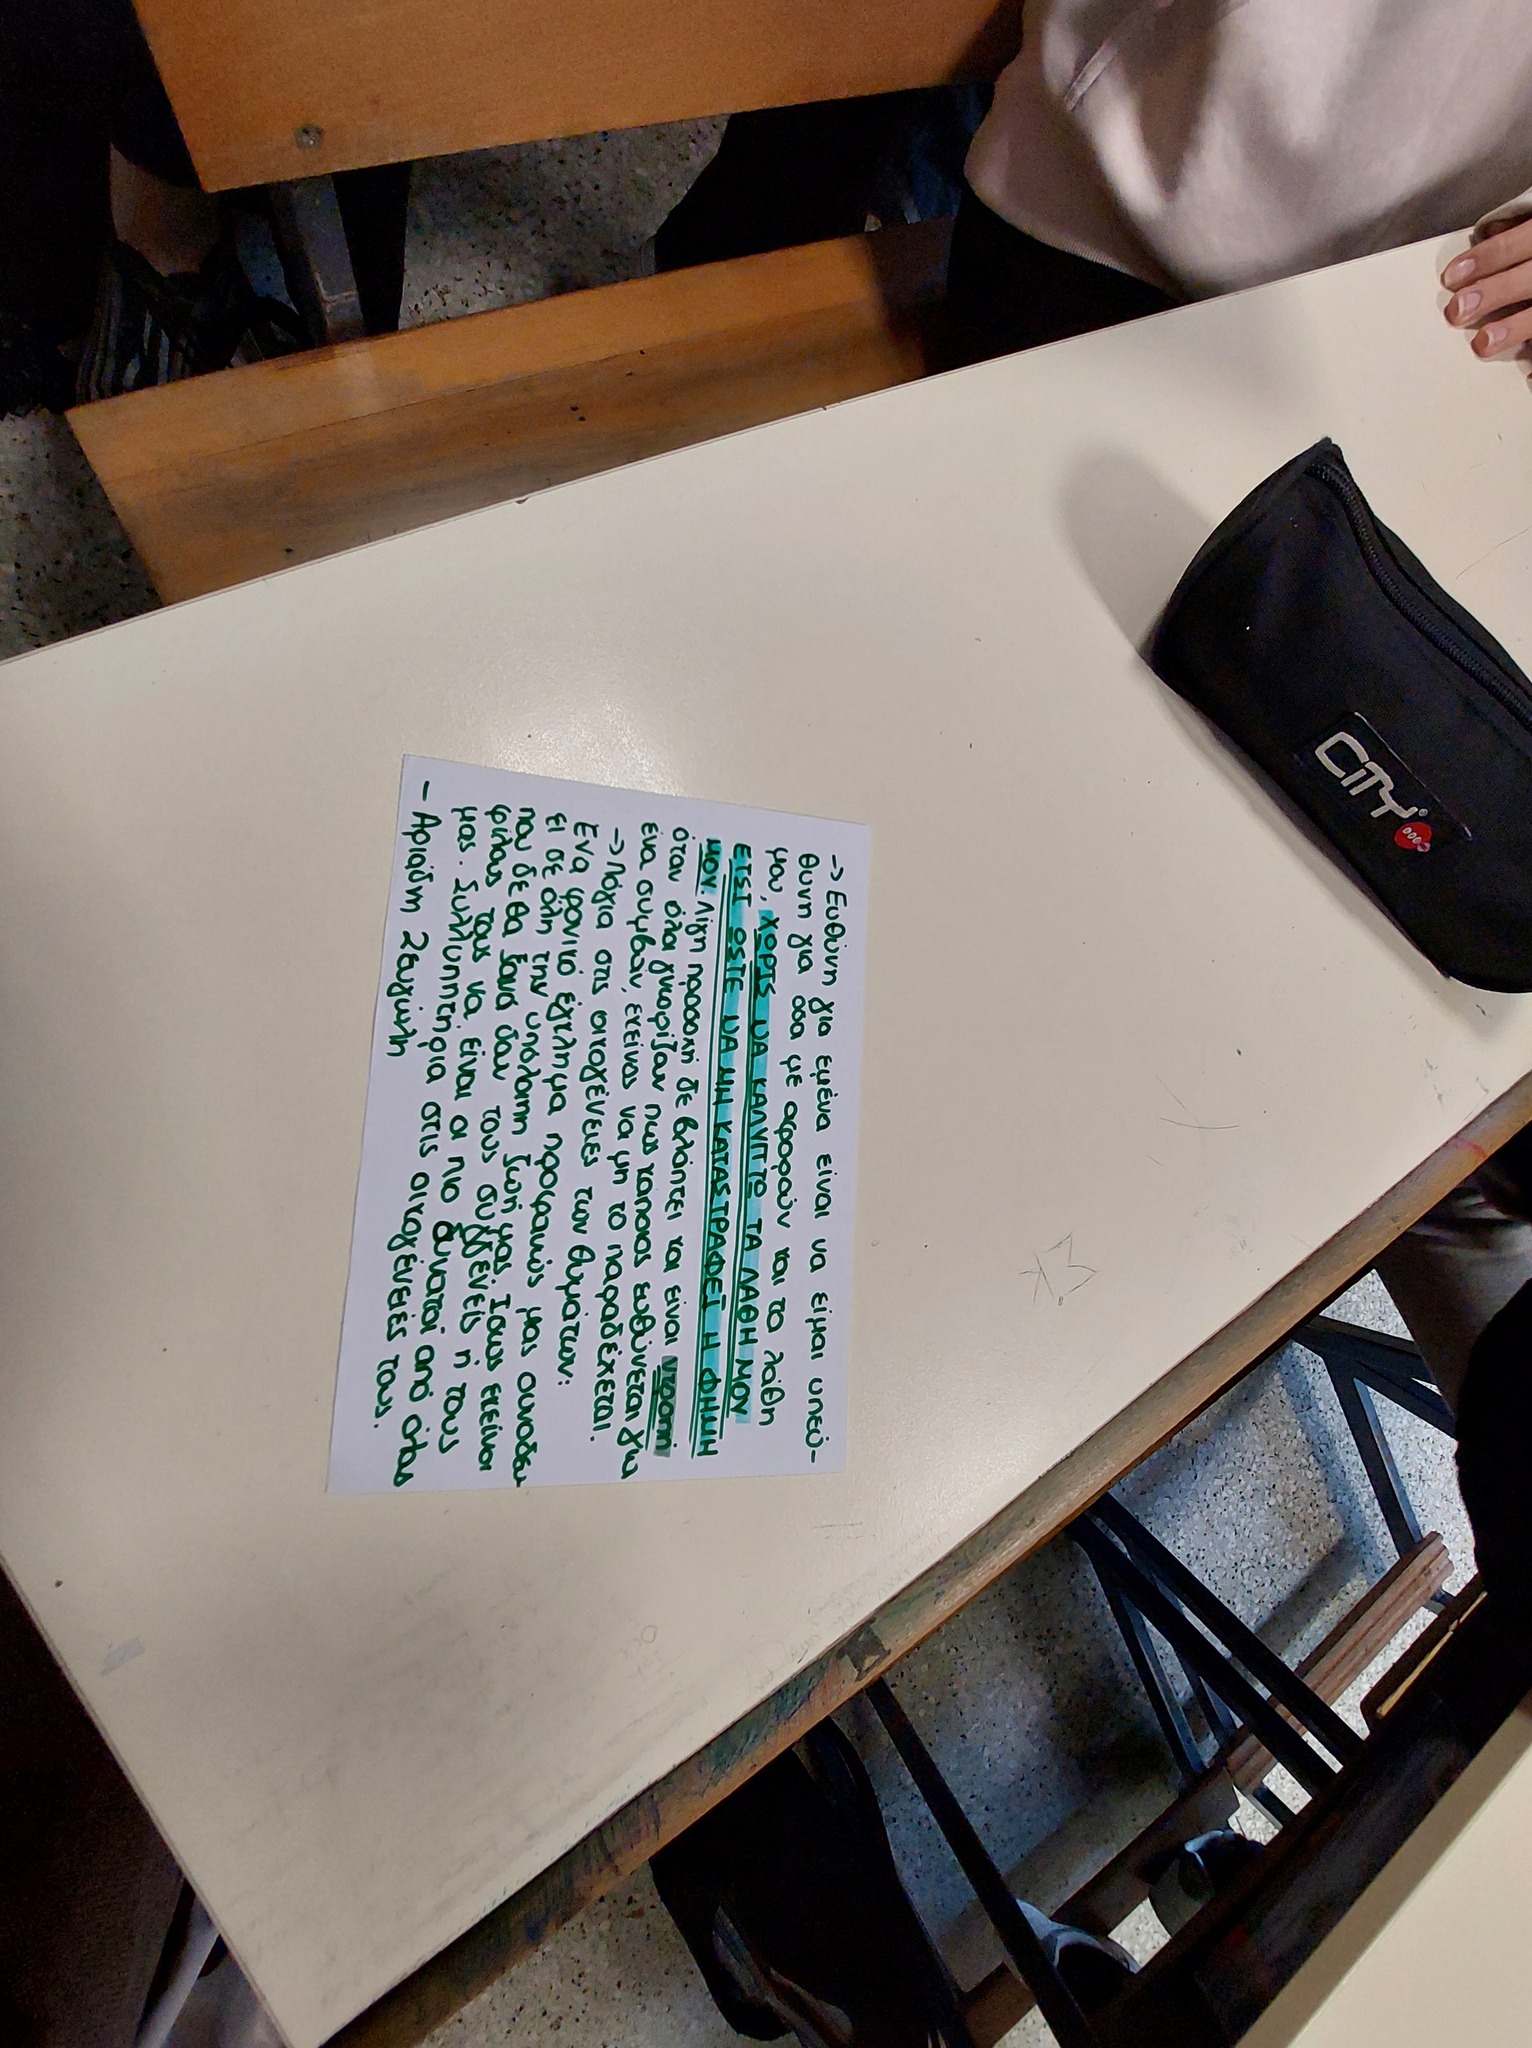 -> Ευθύνη για εμένα είναι να είμαι υπεύ-
θυνη για όσα με αφορούν και τα λάθη
μου, ΧΩΡΙΣ ΝΑ ΚΑΛΥΠΤΩ ΤΑ ΛΑΘΗ ΜΟΥ
ΕΤΣΙ ΩΣΤΕ ΝΑ ΜΗ ΚΑΤΑΣΤΡΑΦΕΙ Η ΦΗΜΗ
ΜΟΥ. Λίγη προσοχή δε βλάπτει και είναι ντροπή
όταν όλοι γνωρίζουν πως κάποιος ευθύνεται για
ένα συμβάν, εκείνος να μη το παραδέχεται.
-> Λόγια στις οικογένειες των θυμάτων:
Ένα φονικό έγκλημα προφανώς μας συνοδεύ-
ει σε όλη την υπόλοιπη ζωή μας. Ίσως εκείνοι
που δε θα ξανά δουν τους συγγενείς ή τους
φίλους τους να είναι οι πιο δυνατοί από όλους
μας. Συλλυπητήρια στις οικογένειές τους.
- Αριάδνη Ζευγώλη
CiTY